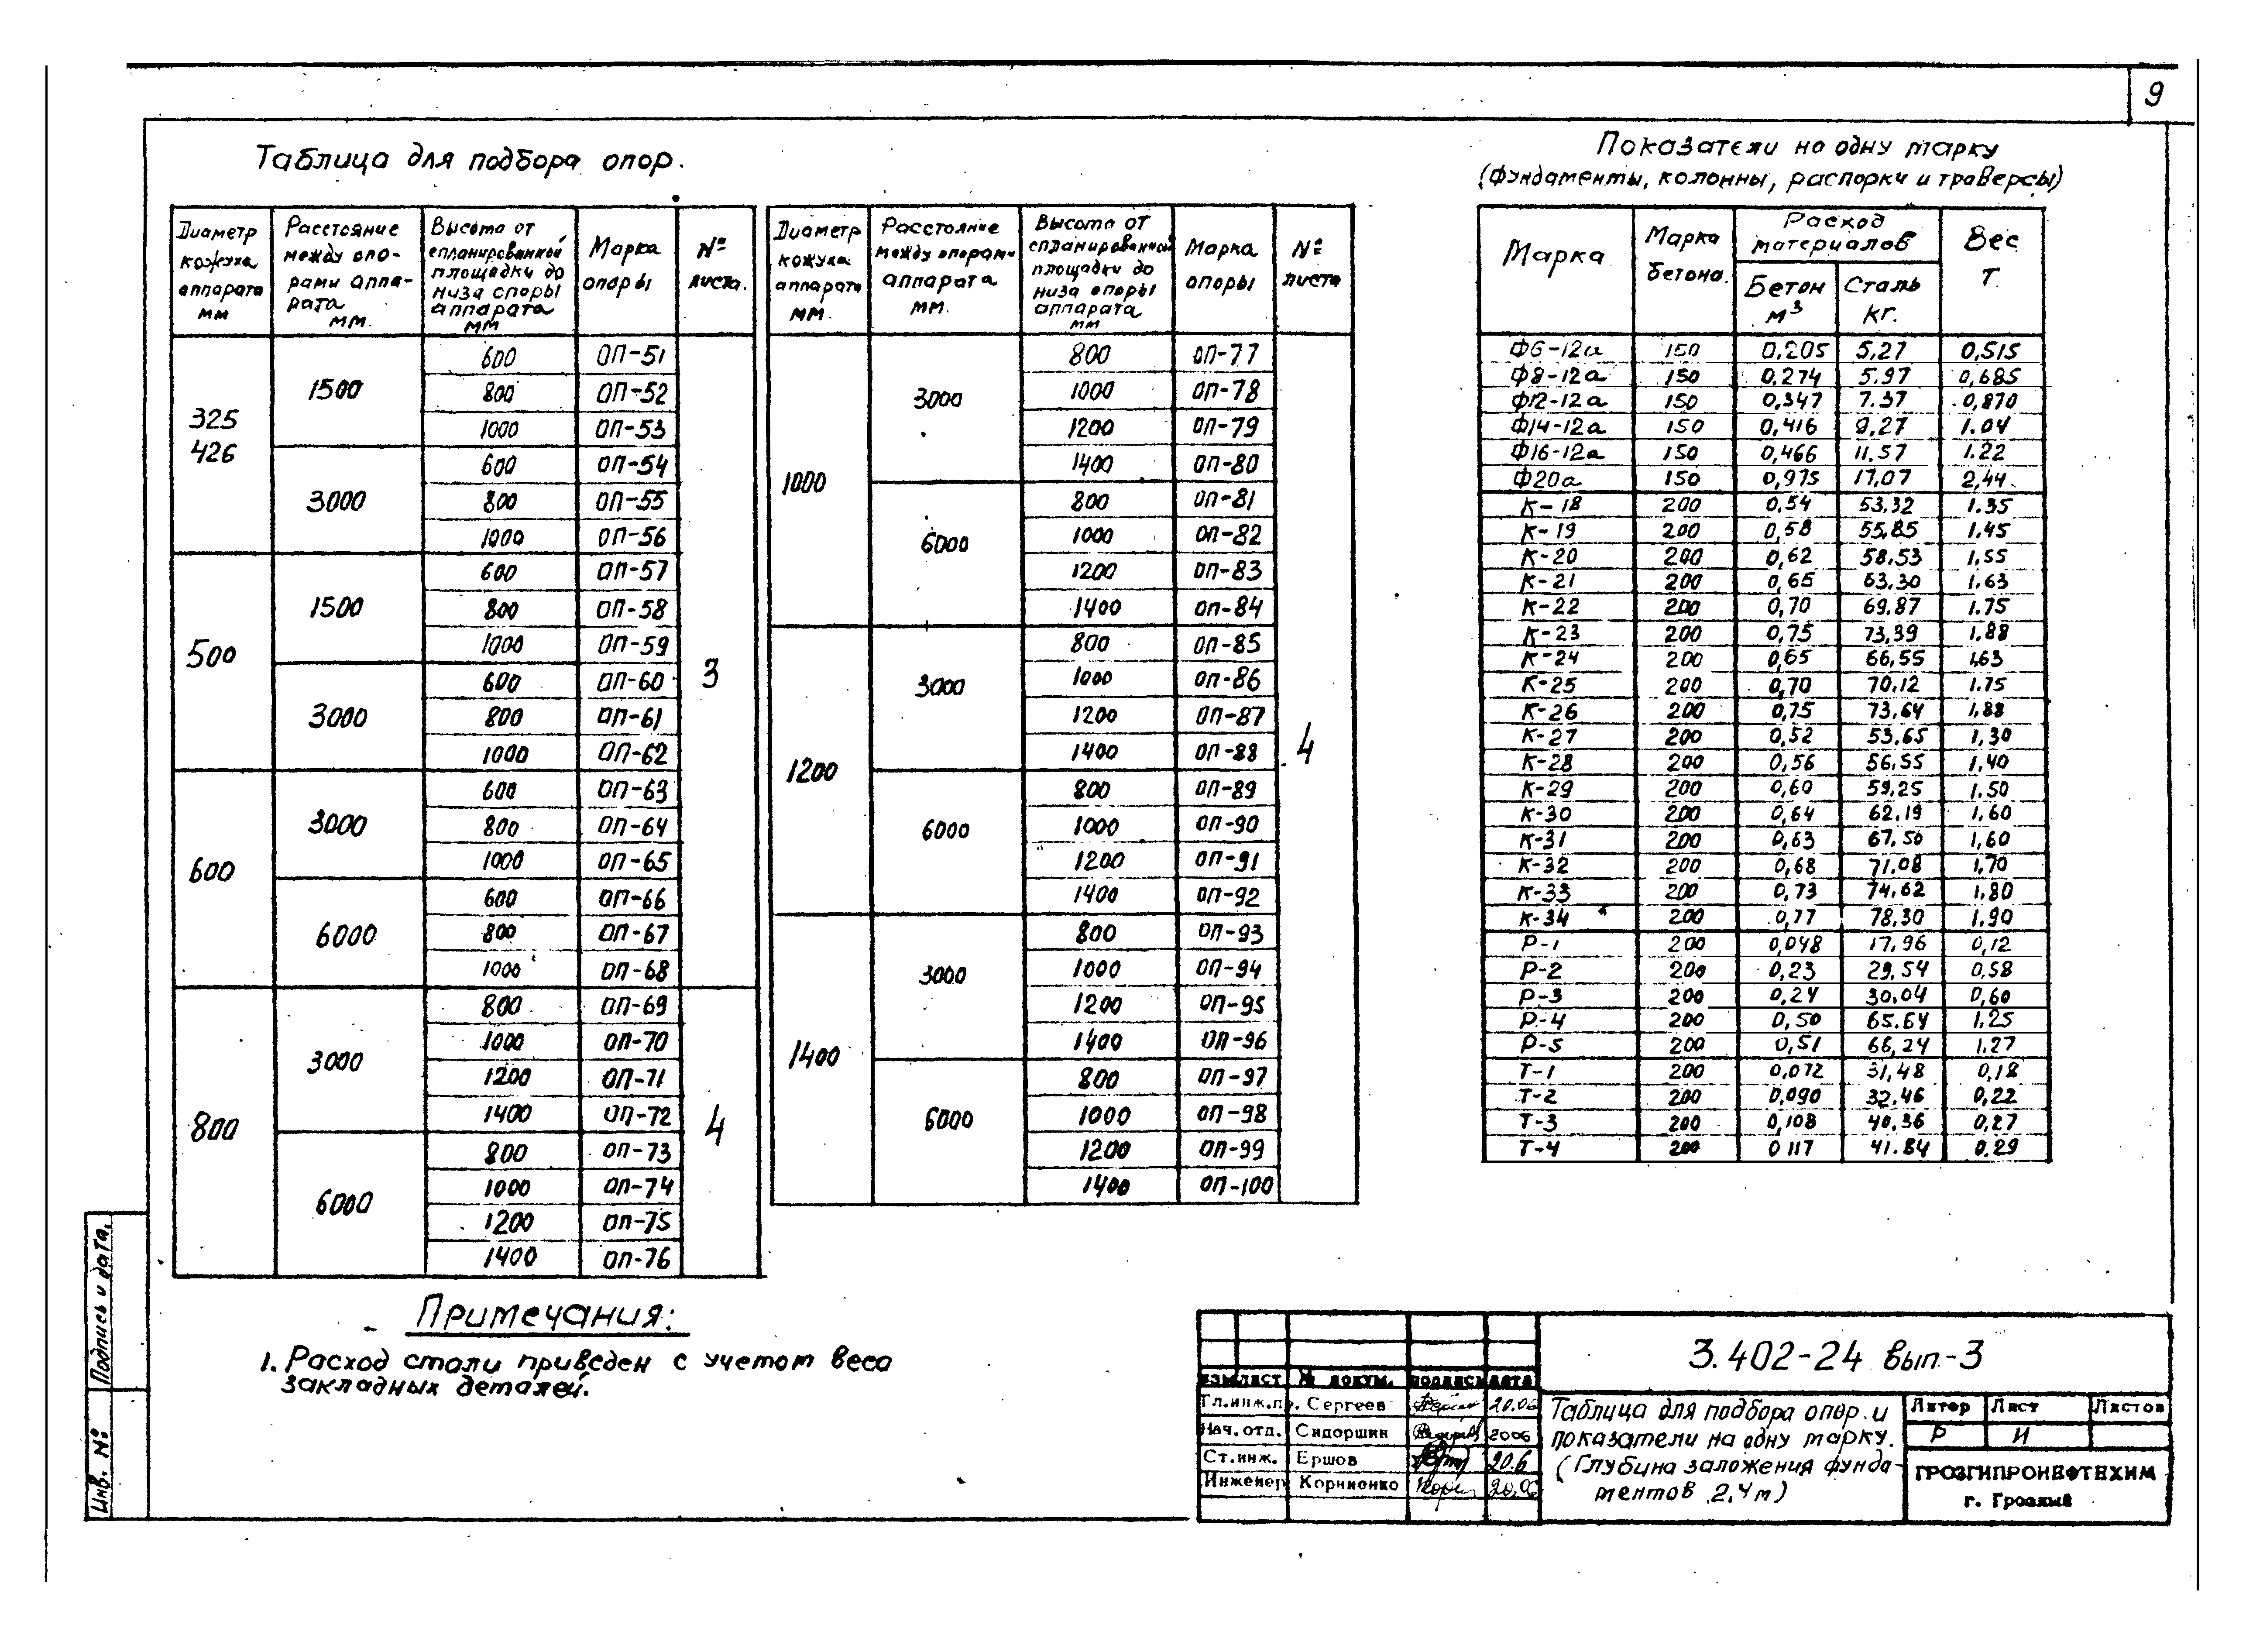 9
Таблица для подбора опор.
Диаметр кожуха аппарата мм | Расстояние между опорами аппарата мм. | Высота от спланированной площадки до низа опоры аппарата мм | Марка опоры | № листа.
325 426 | 1500 | 600 | ОП-51 | 3
800 | ОП-52
1000 | ОП-53
3000 | 600 | ОП-54
800 | ОП-55
1000 | ОП-56
500 | 1500 | 600 | ОП-57
800 | ОП-58
1000 | ОП-59
3000 | 600 | ОП-60
800 | ОП-61
1000 | ОП-62
600 | 3000 | 600 | ОП-63
800 | ОП-64
1000 | ОП-65
6000 | 600 | ОП-66
800 | ОП-67
1000 | ОП-68
800 | 3000 | 800 | ОП-69 | 4
1000 | ОП-70
1200 | ОП-71
1400 | ОП-72
6000 | 800 | ОП-73
1000 | ОП-74
1200 | ОП-75
1400 | ОП-76
Диаметр кожуха аппарата мм. | Расстояние между опорами аппарата мм. | Высота от спланированной площадки до низа опоры аппарата мм | Марка опоры | № листа
1000 | 3000 | 800 | ОП-77 | 4
1000 | ОП-78
1200 | ОП-79
1400 | ОП-80
6000 | 800 | ОП-81
1000 | ОП-82
1200 | ОП-83
1400 | ОП-84
1200 | 3000 | 800 | ОП-85
1000 | ОП-86
1200 | ОП-87
1400 | ОП-88
6000 | 800 | ОП-89
1000 | ОП-90
1200 | ОП-91
1400 | ОП-92
1400 | 3000 | 800 | ОП-93
1000 | ОП-94
1200 | ОП-95
1400 | ОП-96
6000 | 800 | ОП-97
1000 | ОП-98
1200 | ОП-99
1400 | ОП-100
Показатели на одну марку
(фундаменты, колонны, распорки и траверсы)
Марка | Марка бетона. | Расход материалов | Бетон м3 | Сталь кг. | Вес т.
Ф6-12а | 150 | 0,205 | 5,27 | 0,515
Ф8-12а | 150 | 0,274 | 5.97 | 0,685
Ф12-12а | 150 | 0,347 | 7.37 | 0,870
Ф14-12а | 150 | 0,416 | 9,27 | 1.04
Ф16-12а | 150 | 0,466 | 11.57 | 1.22
Ф20а | 150 | 0,975 | 17,07 | 2,44
К-18 | 200 | 0,54 | 53,32 | 1.35
К-19 | 200 | 0,58 | 55,85 | 1.45
К-20 | 200 | 0,62 | 58,53 | 1,55
К-21 | 200 | 0,65 | 63,30 | 1.63
К-22 | 200 | 0,70 | 69,87 | 1.75
К-23 | 200 | 0,75 | 73,39 | 1.88
К-24 | 200 | 0,65 | 66,55 | 1,63
К-25 | 200 | 0,70 | 70,12 | 1.75
К-26 | 200 | 0,75 | 73,64 | 1,88
К-27 | 200 | 0,52 | 53,65 | 1,30
К-28 | 200 | 0,56 | 56,55 | 1,40
К-29 | 200 | 0,60 | 59,25 | 1.50
К-30 | 200 | 0,64 | 62.19 | 1,60
К-31 | 200 | 0,63 | 67,50 | 1,60
К-32 | 200 | 0,68 | 71.08 | 1,70
К-33 | 200 | 0,73 | 74,62 | 1,80
К-34 | 200 | 0,77 | 78,30 | 1.90
Р-1 | 200 | 0,048 | 17,96 | 0,12
Р-2 | 200 | 0,23 | 29,54 | 0,58
Р-3 | 200 | 0,24 | 30.04 | 0,60
Р-4 | 200 | 0,50 | 65.64 | 1,25
Р-5 | 200 | 0,51 | 66,24 | 1.27
Т-1 | 200 | 0,072 | 31,48 | 0,18
Т-2 | 200 | 0,090 | 32.46 | 0,22
Т-3 | 200 | 0,108 | 40,36 | 0,27
Т-4 | 200 | 0 117 | 41.84 | 0.29
Примечания:
1. Расход стали приведен с учетом веса
закладных деталей.
Подпись и дата.
Инв. №
изм лист | № докум. | подпись | дата
Гл.инж.пр. Сергеев | 20.06
Нач.отд. Сидоршин | 2006
Ст.инж. Ершов | 20.6
Инженер Корниенко
3.402-24 вып-3
Таблица для подбора опор и
показатели на одну марку.
(Глубина заложения фунда-
ментов 2,4м)
Литер | Лист | Листов
Р | И
ГРОЗГИПРОНЕФТЕХИМ
г. Грозный